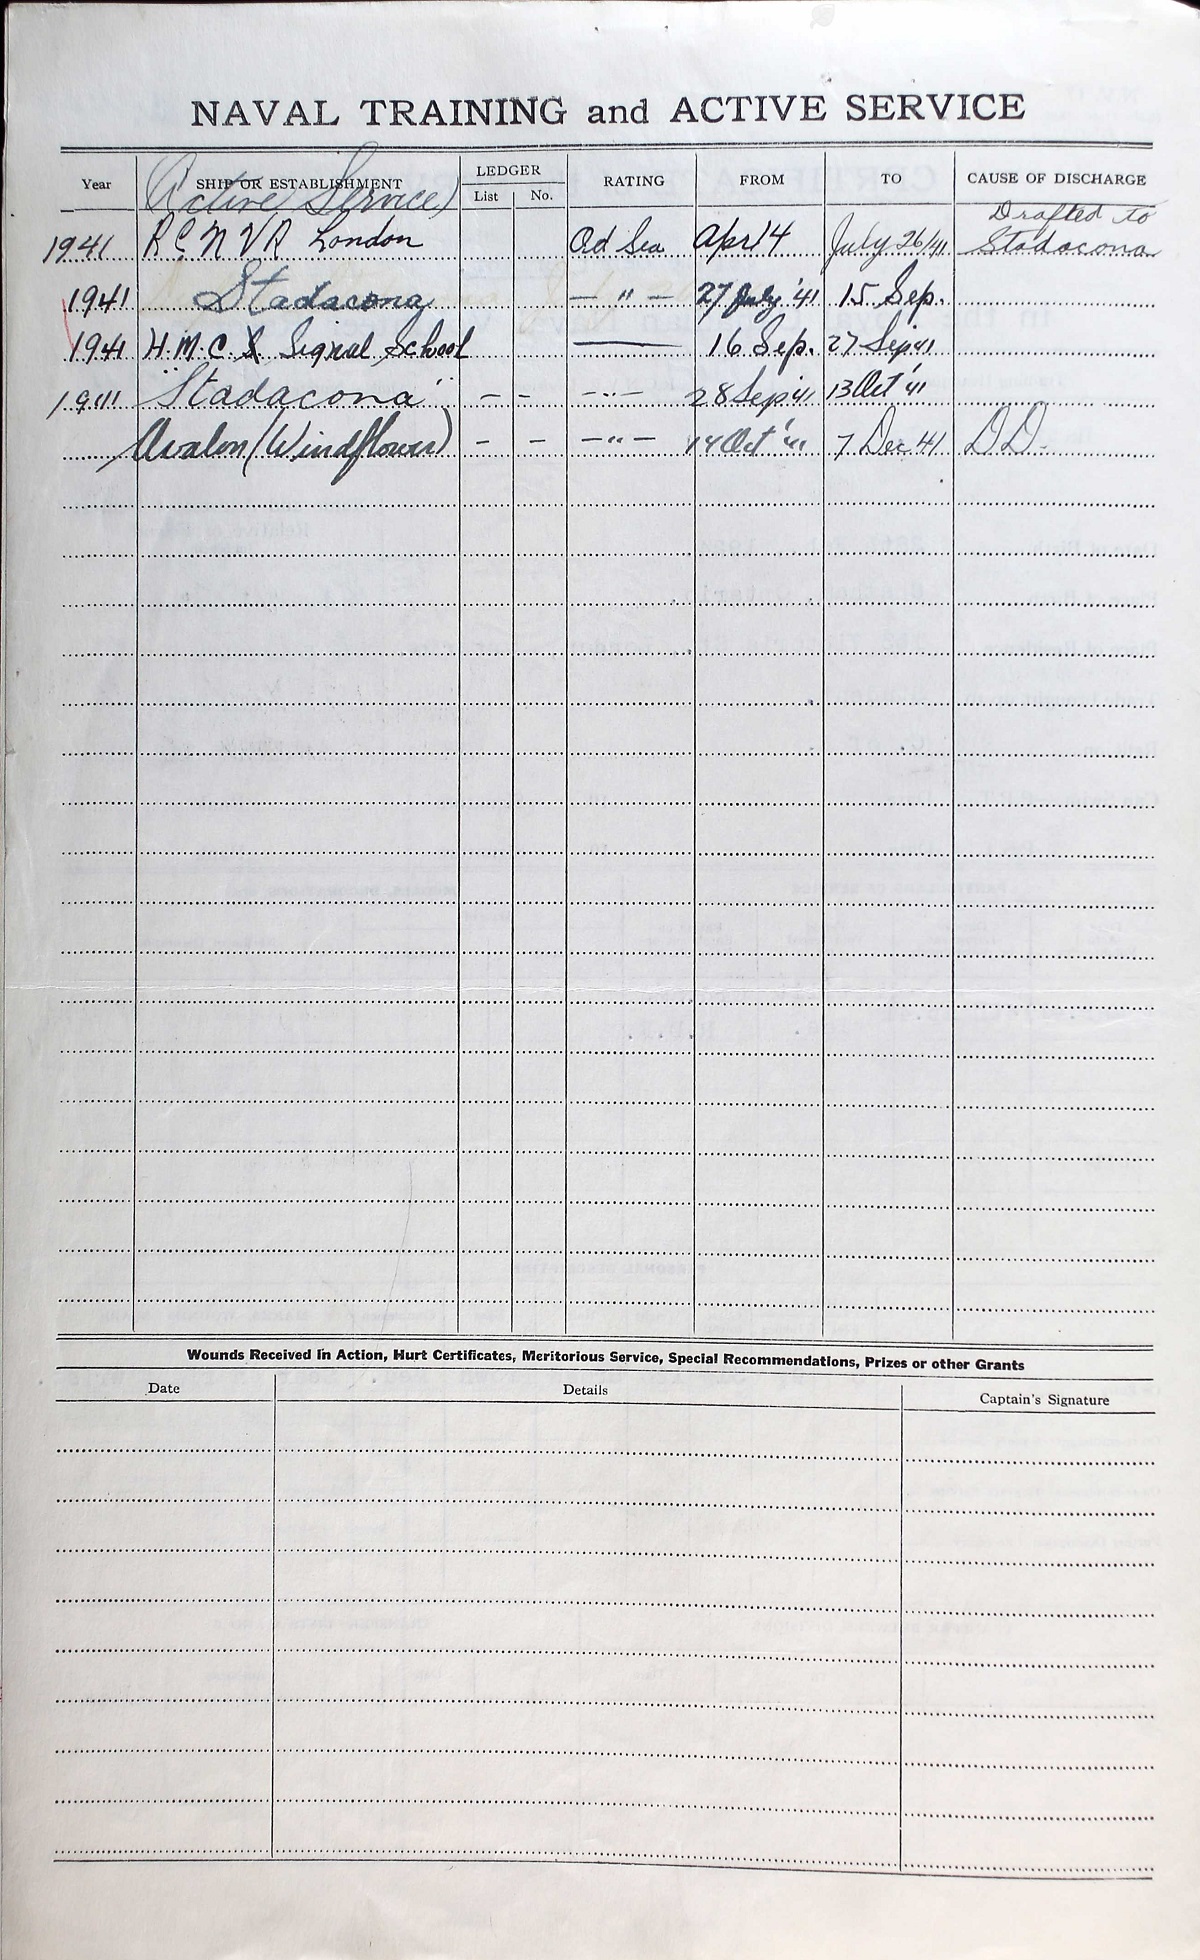 NAVAL TRAINING and ACTIVE SERVICE
Year SHIP OR ESTABLISHMENT LEDGER List No. RATING FROM TO CAUSE OF DISCHARGE
(Active Service)
1941 RCNVR London Od Sea Apr 14 July 26/41 Drafted to Stadacona
1941 Stadacona — " — 27 July '41 15 Sep.
1941 H.M.C.S Signal School 16 Sep. 27 Sep 41
1941 "Stadacona" - - — " — 28 Sep 41 13 Oct '41
Avalon (Windflower) - - — " — 14 Oct '41 7 Dec 41 DD.
Wounds Received in Action, Hurt Certificates, Meritorious Service, Special Recommendations, Prizes or other Grants
Date Details Captain's Signature